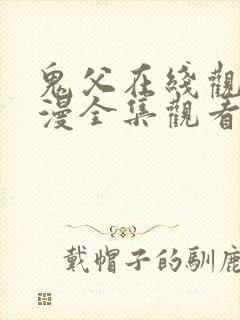 鬼父在綫觀
漫全集觀看
戴帽子的馴鹿